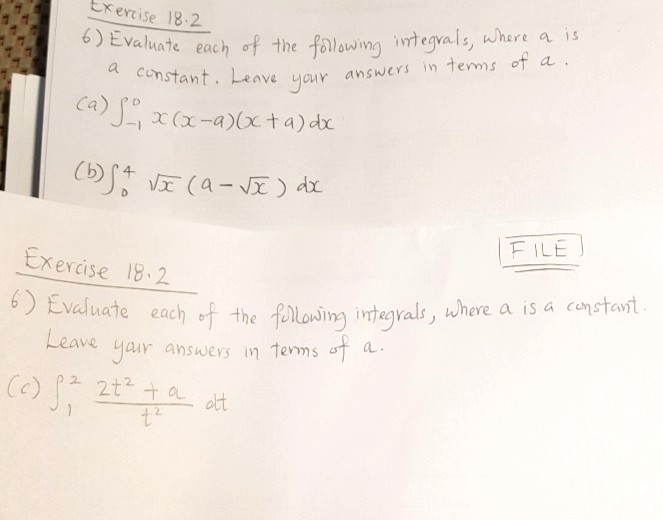 Exercise 18.2
6) Evaluate each of the following integrals, where a is
a constant. Leave your answers in terms of a.
(a) ∫₋₁⁰ x(x-a)(x+a) dx
(b) ∫₀⁴ √x (a-√x) dx
FILE
Exercise 18.2
6) Evaluate each of the following integrals, where a is a constant.
Leave your answers in terms of a.
(c) ∫₁² (2t² + a)/t² dt